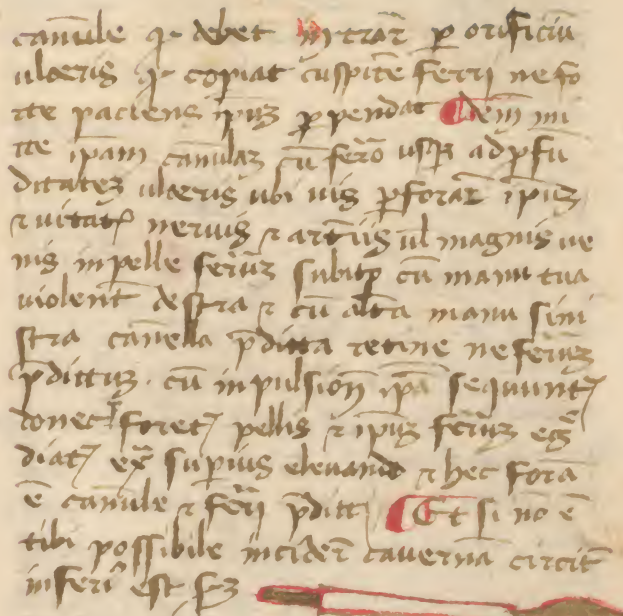 canule q̇ debet intrar̄ p orificiū
ulceris q̇ copiat cuspitē ferri ne fo
rte paciens ip̄uȝ ꝑpendat ¶ Dem̄ mi
tte ip̄am canulaȝ cū fero usqȝ ad ꝓfū
ditateȝ ulceris ubi uis ꝑforar̄ ip̄uȝ
⁊ uitat neruis ⁊ art̄iis ul̄ magnis ue
nis in pelle feruȝ subito cū manu tua
uiolent̄ destra ⁊ cū alt̄a manu sini
stra canella p̄ditta retine ne feruȝ
p̄dittuȝ cū inpulsion̄ ip̄a sequunt̄
donec foret̄ pellis ⁊ ip̄uȝ feruȝ eg̃
diat̄ ex̄ superius eleuand ⁊ hec forā
ē canule ⁊ feri p̄ditti ¶ Et si nō ē
tibi possibile incider̄ cauernā circit̄
inferiꝰ est sȝ